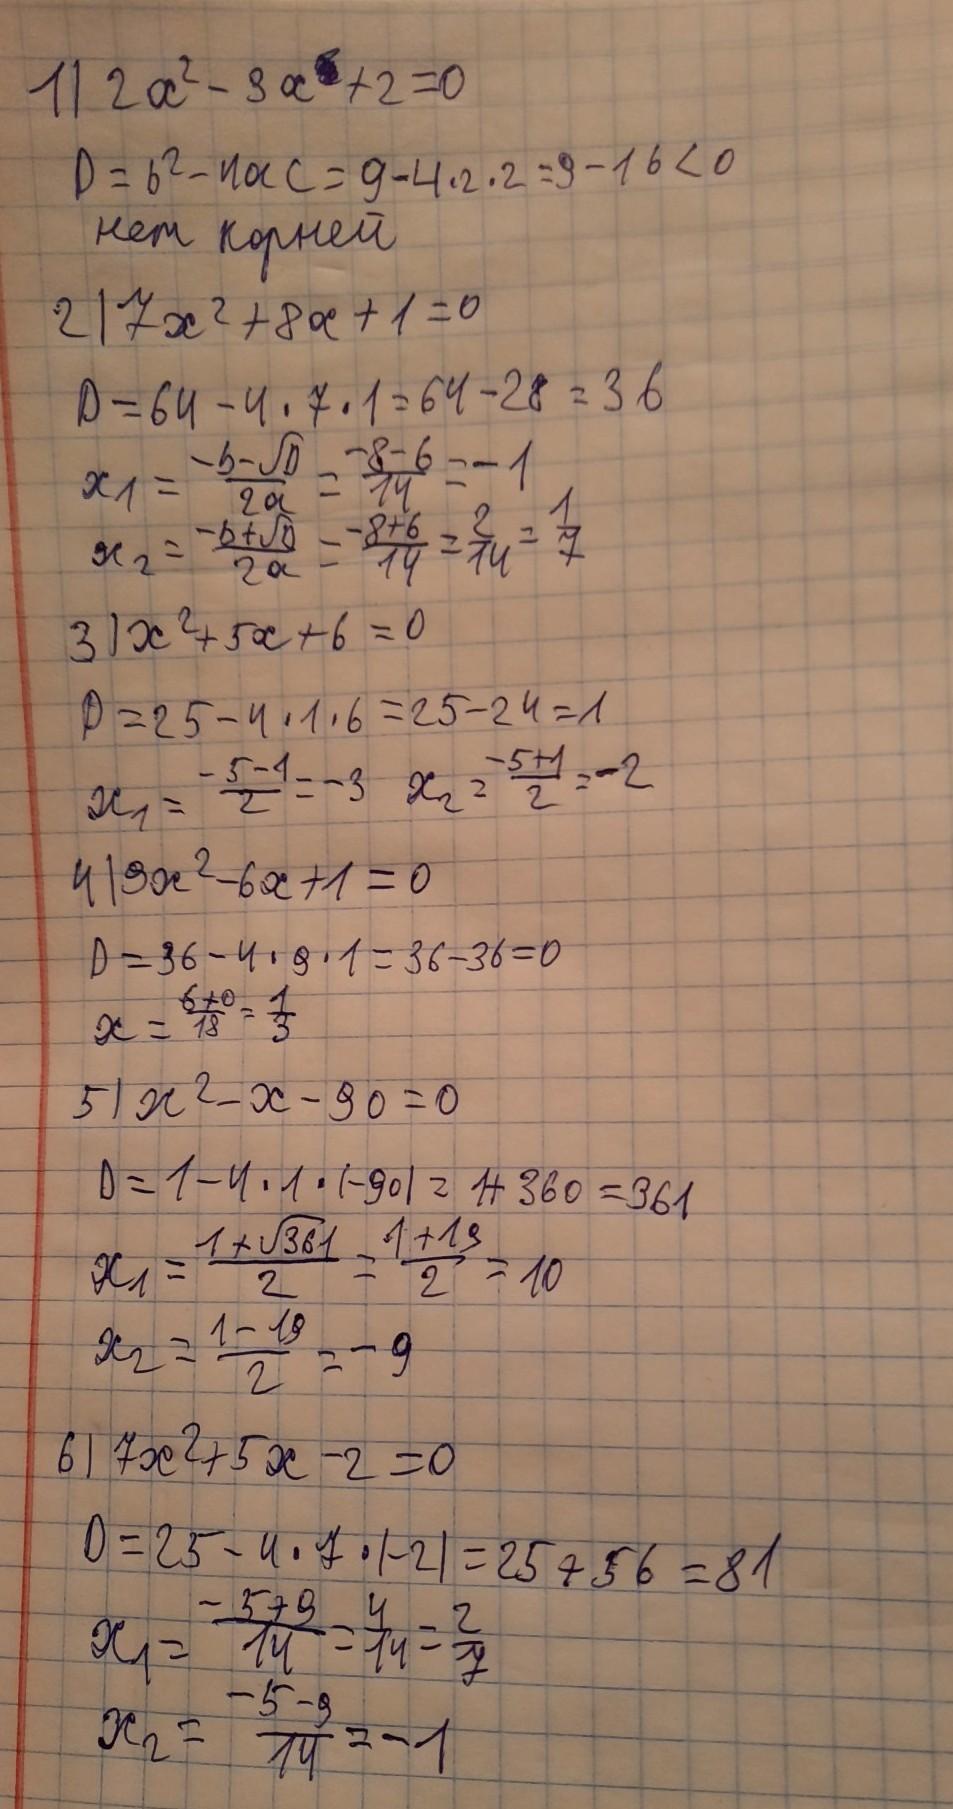 1) 2x² - 3x + 2 = 0
D = b² - 4ac = 9 - 4·2·2 = 9 - 16 < 0
нет корней
2) 7x² + 8x + 1 = 0
D = 64 - 4·7·1 = 64 - 28 = 36
x₁ = (-b-√D)/2a = (-8-6)/14 = -1
x₂ = (-b+√D)/2a = (-8+6)/14 = 2/14 = 1/7
3) x² + 5x + 6 = 0
D = 25 - 4·1·6 = 25 - 24 = 1
x₁ = (-5-1)/2 = -3 x₂ = (-5+1)/2 = -2
4) 9x² - 6x + 1 = 0
D = 36 - 4·9·1 = 36 - 36 = 0
x = (6+0)/18 = 1/3
5) x² - x - 90 = 0
D = 1 - 4·1·(-90) = 1 + 360 = 361
x₁ = (1+√361)/2 = (1+19)/2 = 10
x₂ = (1-19)/2 = -9
6) 7x² + 5x - 2 = 0
D = 25 - 4·7·(-2) = 25 + 56 = 81
x₁ = (-5+9)/14 = 4/14 = 2/7
x₂ = (-5-9)/14 = -1